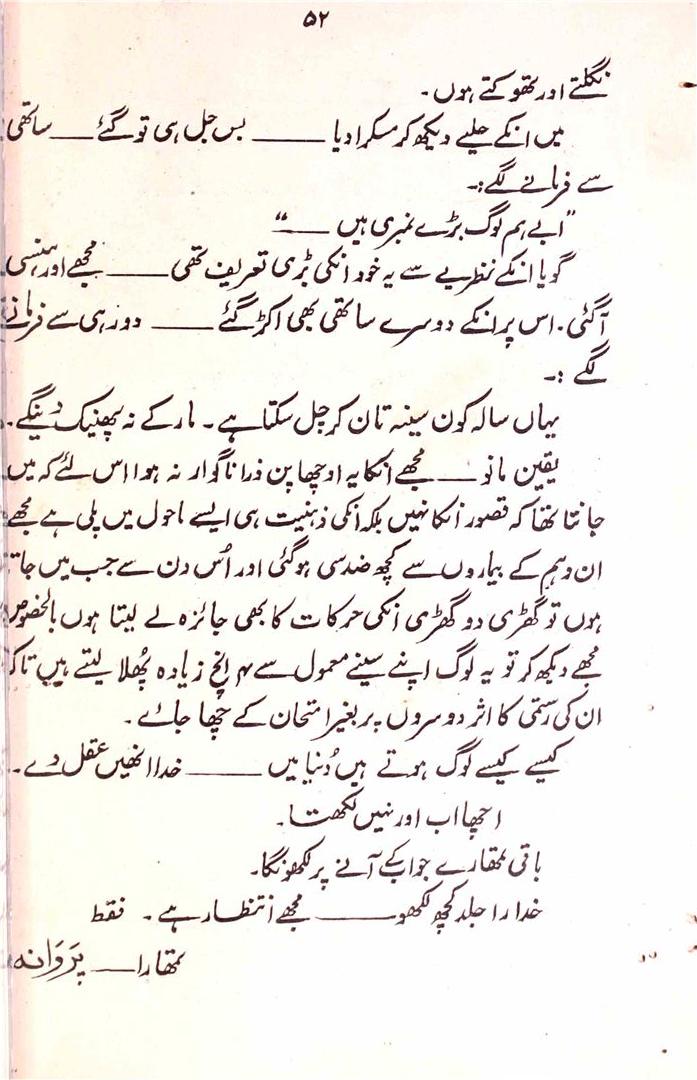 ۵۲
نگلتے اور تھوکتے ہوں۔
میں انکے حلیے دیکھ کر مسکرا دیا ——— بس جل ہی تو گئے —— ساتھی
سے فرمانے لگے:۔
”ابے ہم لوگ بڑے نمبری ہیں ——“
گویا انکے نظریے سے یہ خود انکی بڑی تعریف تھی ——— مجھے اور ہنسی
آگئی۔ اس پر انکے دوسرے ساتھی بھی اکڑ گئے ——— دور ہی سے فرمانے
لگے :۔
یہاں سالہ کون سینہ تان کر چل سکتا ہے۔ مار کے نہ پھینک دینگے۔
یقین مانو —— مجھے انکا یہ اوچھا پن ذرا ناگوار نہ ہوا اس لئے کہ میں
جانتا تھا کہ قصور انکا نہیں بلکہ انکی ذہنیت ہی ایسے ماحول میں پلی ہے مجھے
ان وہم کے بیماروں سے کچھ ضد سی ہوگئی اور اُس دن سے جب میں جاتا
ہوں تو گھڑی دو گھڑی انکی حرکات کا بھی جائزہ لے لیتا ہوں بالخصوص
مجھے دیکھ کر تو یہ لوگ اپنے سینے معمول سے ۴ انچ زیادہ پُھلا لیتے ہیں تاکہ
ان کی رستمی کا اثر دوسروں پر بغیر امتحان کے چھا جائے۔
کیسے کیسے لوگ ہوتے ہیں دُنیا میں ——— خدا انھیں عقل دے۔
اچھا اب اور نہیں لکھتا۔
باقی تمھارے جواب کے آنے پر لکھونگا۔
خدارا جلد کچھ لکھو ——— مجھے انتظار ہے۔ فقط
تمھارا —— پَروَانہ